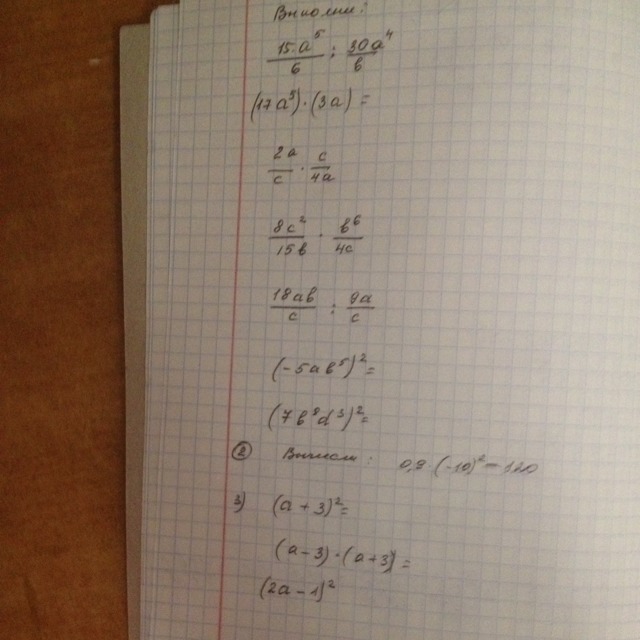 Выполни:
15a⁵/b : 30a⁴/b
(17a³)·(3a) =
2a/c · c/4a
8c²/15b · b⁶/4c
18ab/c : 9a/c
(-5ab⁵)²=
(7b⁸d³)²=
② (-10)² - 120
3) (a+3)²=
(a-3)·(a+3)=
(2a-1)²